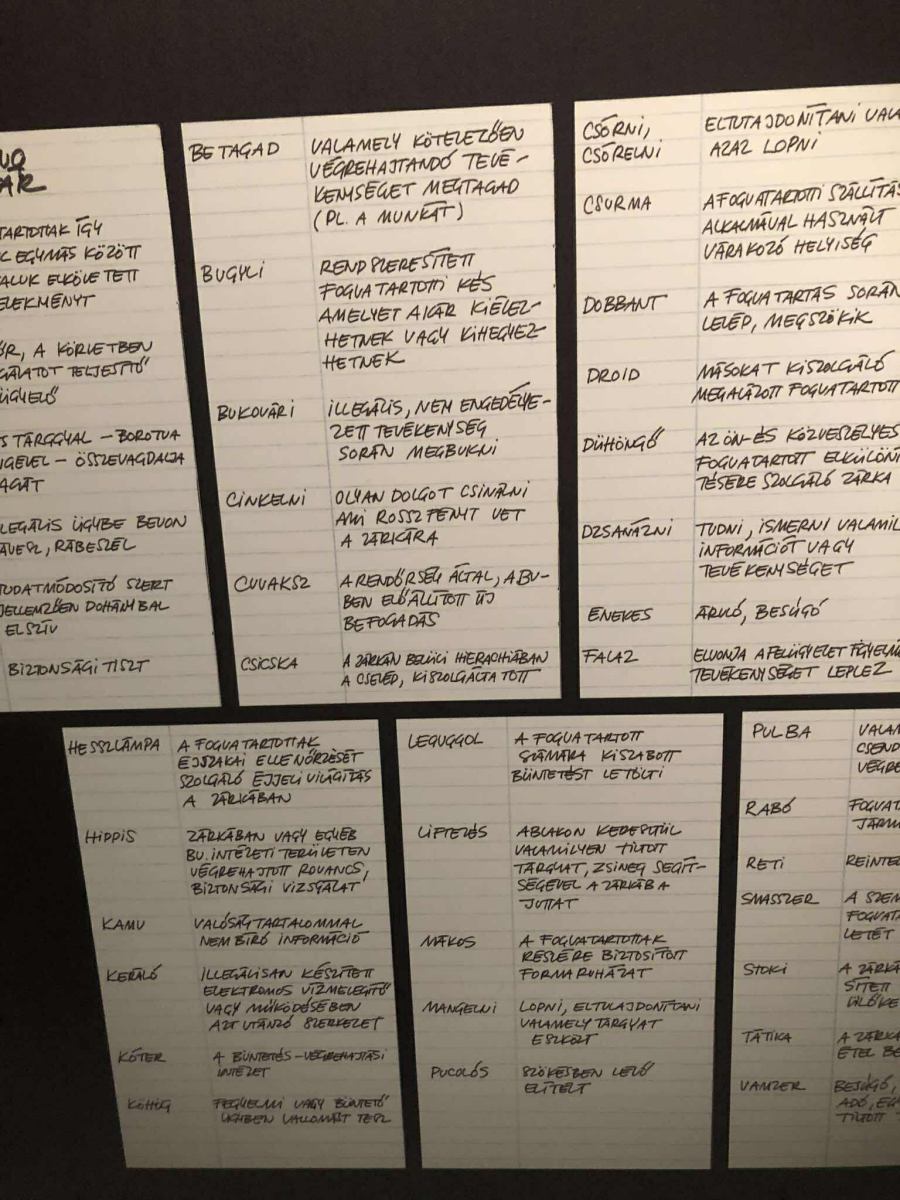 TARTOTTAK ÍGY
EGYMÁS KÖZÖTT
ELKÖVETETT
A KÖRLETBEN
TELJESÍTŐ
TÁRGGYAL – BOROTVA
– ÖSSZEVAGDALJA
ÜGYBE BEVON
RÁBESZÉL
TUDATMÓDOSÍTÓ SZERT
JELLEMZŐEN DOHÁNYBAL
ELSZÍV
BIZTONSÁGI TISZT
BETAGAD VALAMELY KÖTELEZŐEN
VÉGREHAJTANDÓ TEVÉ-
KENYSÉGET MEGTAGAD
(PL. A MUNKÁT)
BUGYLI RENDSZERESÍTETT
FOGVATARTOTTI KÉS
AMELYET AKÁR KIÉLEZ-
HETNEK VAGY KIHEGYEZ-
HETNEK
BUKOVÁRI ILLEGÁLIS, NEM ENGEDÉLYE-
ZETT TEVÉKENYSÉG
SORÁN MEGBUKNI
CINKELNI OLYAN DOLGOT CSINÁLNI
AMI ROSSZ FÉNYT VET
A ZÁRKÁRA
CUVAKSZ A RENDŐRSÉG ÁLTAL, A BV-
BEN ELŐÁLLÍTOTT ÚJ
BEFOGADÁS
CSICSKA A ZÁRKÁN BELÜLI HIERACHIÁBAN
A CSELÉD, KISZOLGÁLTATOTT
CSÓRNI, ELTULAJDONÍTANI
CSÓRELNI AZAZ LOPNI
CSURMA A FOGVATARTOTTI SZÁLLÍTÁS
ALKALMÁVAL HASZNÁLT
VÁRAKOZÓ HELYISÉG
DOBBANT A FOGVATARTÁS SORÁN
LELÉP, MEGSZÖKIK
DROID MÁSOKAT KISZOLGÁLÓ
MEGALÁZOTT FOGVATARTOTT
DÜHÖNGŐ AZ ÖN- ÉS KÖZVESZÉLYES
FOGVATARTOTT ELKÜLÖNÍ
TÉSÉRE SZOLGÁLÓ ZÁRKA
DZSANÁZNI TUDNI, ISMERNI VALAMIL
INFORMÁCIÓT VAGY
TEVÉKENYSÉGET
ÉNEKES ÁRULÓ, BESÚGÓ
FALAZ ELVONJA A FELÜGYELET FIGYELMÉ
TEVÉKENYSÉGET LEPLEZ
HESSZLÁMPA A FOGVATARTOTTAK
ÉJSZAKAI ELLENŐRZÉSÉT
SZOLGÁLÓ ÉJJELI VILÁGÍTÁS
A ZÁRKÁBAN
HIPPIS ZÁRKÁBAN VAGY EGYÉB
BV. INTÉZETI TERÜLETEN
VÉGREHAJTOTT ROVANCS,
BIZTONSÁGI VIZSGÁLAT
KAMU VALÓSÁGTARTALOMMAL
NEM BÍRÓ INFORMÁCIÓ
KERÁLÓ ILLEGÁLISAN KÉSZÍTETT
ELEKTROMOS VÍZMELEGÍTŐ
VAGY MŰKÖDÉSÉBEN
AZT UTÁNZÓ SZERKEZET
KÓTER A BÜNTETÉS-VÉGREHAJTÁSI
INTÉZET
KÖHÖG FEGYELMI VAGY BÜNTETŐ
ÜGYBEN VALLOMÁST TESZ
LEGUGGOL A FOGVATARTOTT
SZÁMÁRA KISZABOTT
BÜNTETÉST LETÖLTI
LIFTEZÉS ABLAKON KERESZTÜL
VALAMILYEN TILTOTT
TÁRGYAT, ZSINEG SEGÍT-
SÉGÉVEL A ZÁRKÁBA
JUTTAT
MÁKOS A FOGVATARTOTTAK
RÉSZÉRE BIZTOSÍTOTT
FORMARUHÁZAT
MANGELNI LOPNI, ELTULAJDONÍTANI
VALAMELY TÁRGYAT
ESZKÖZT
PUCOLÓS SZÖKÉSBEN LEVŐ
ELÍTÉLT
PULBA VALAM
CSEND
VÉGRE
RABÓ FOGVAT
JÁRM
RETI REINTE
SMASSZER A SZEM
FOGVAT
LETÉT
STOKI A ZÁRKÁ
SÍTETT
ÜLŐKE
TÁTIKA A ZÁRKA
ÉTEL BE
VAMZER BESÚGÓ,
ADÓ, EGY
TILTOTT T